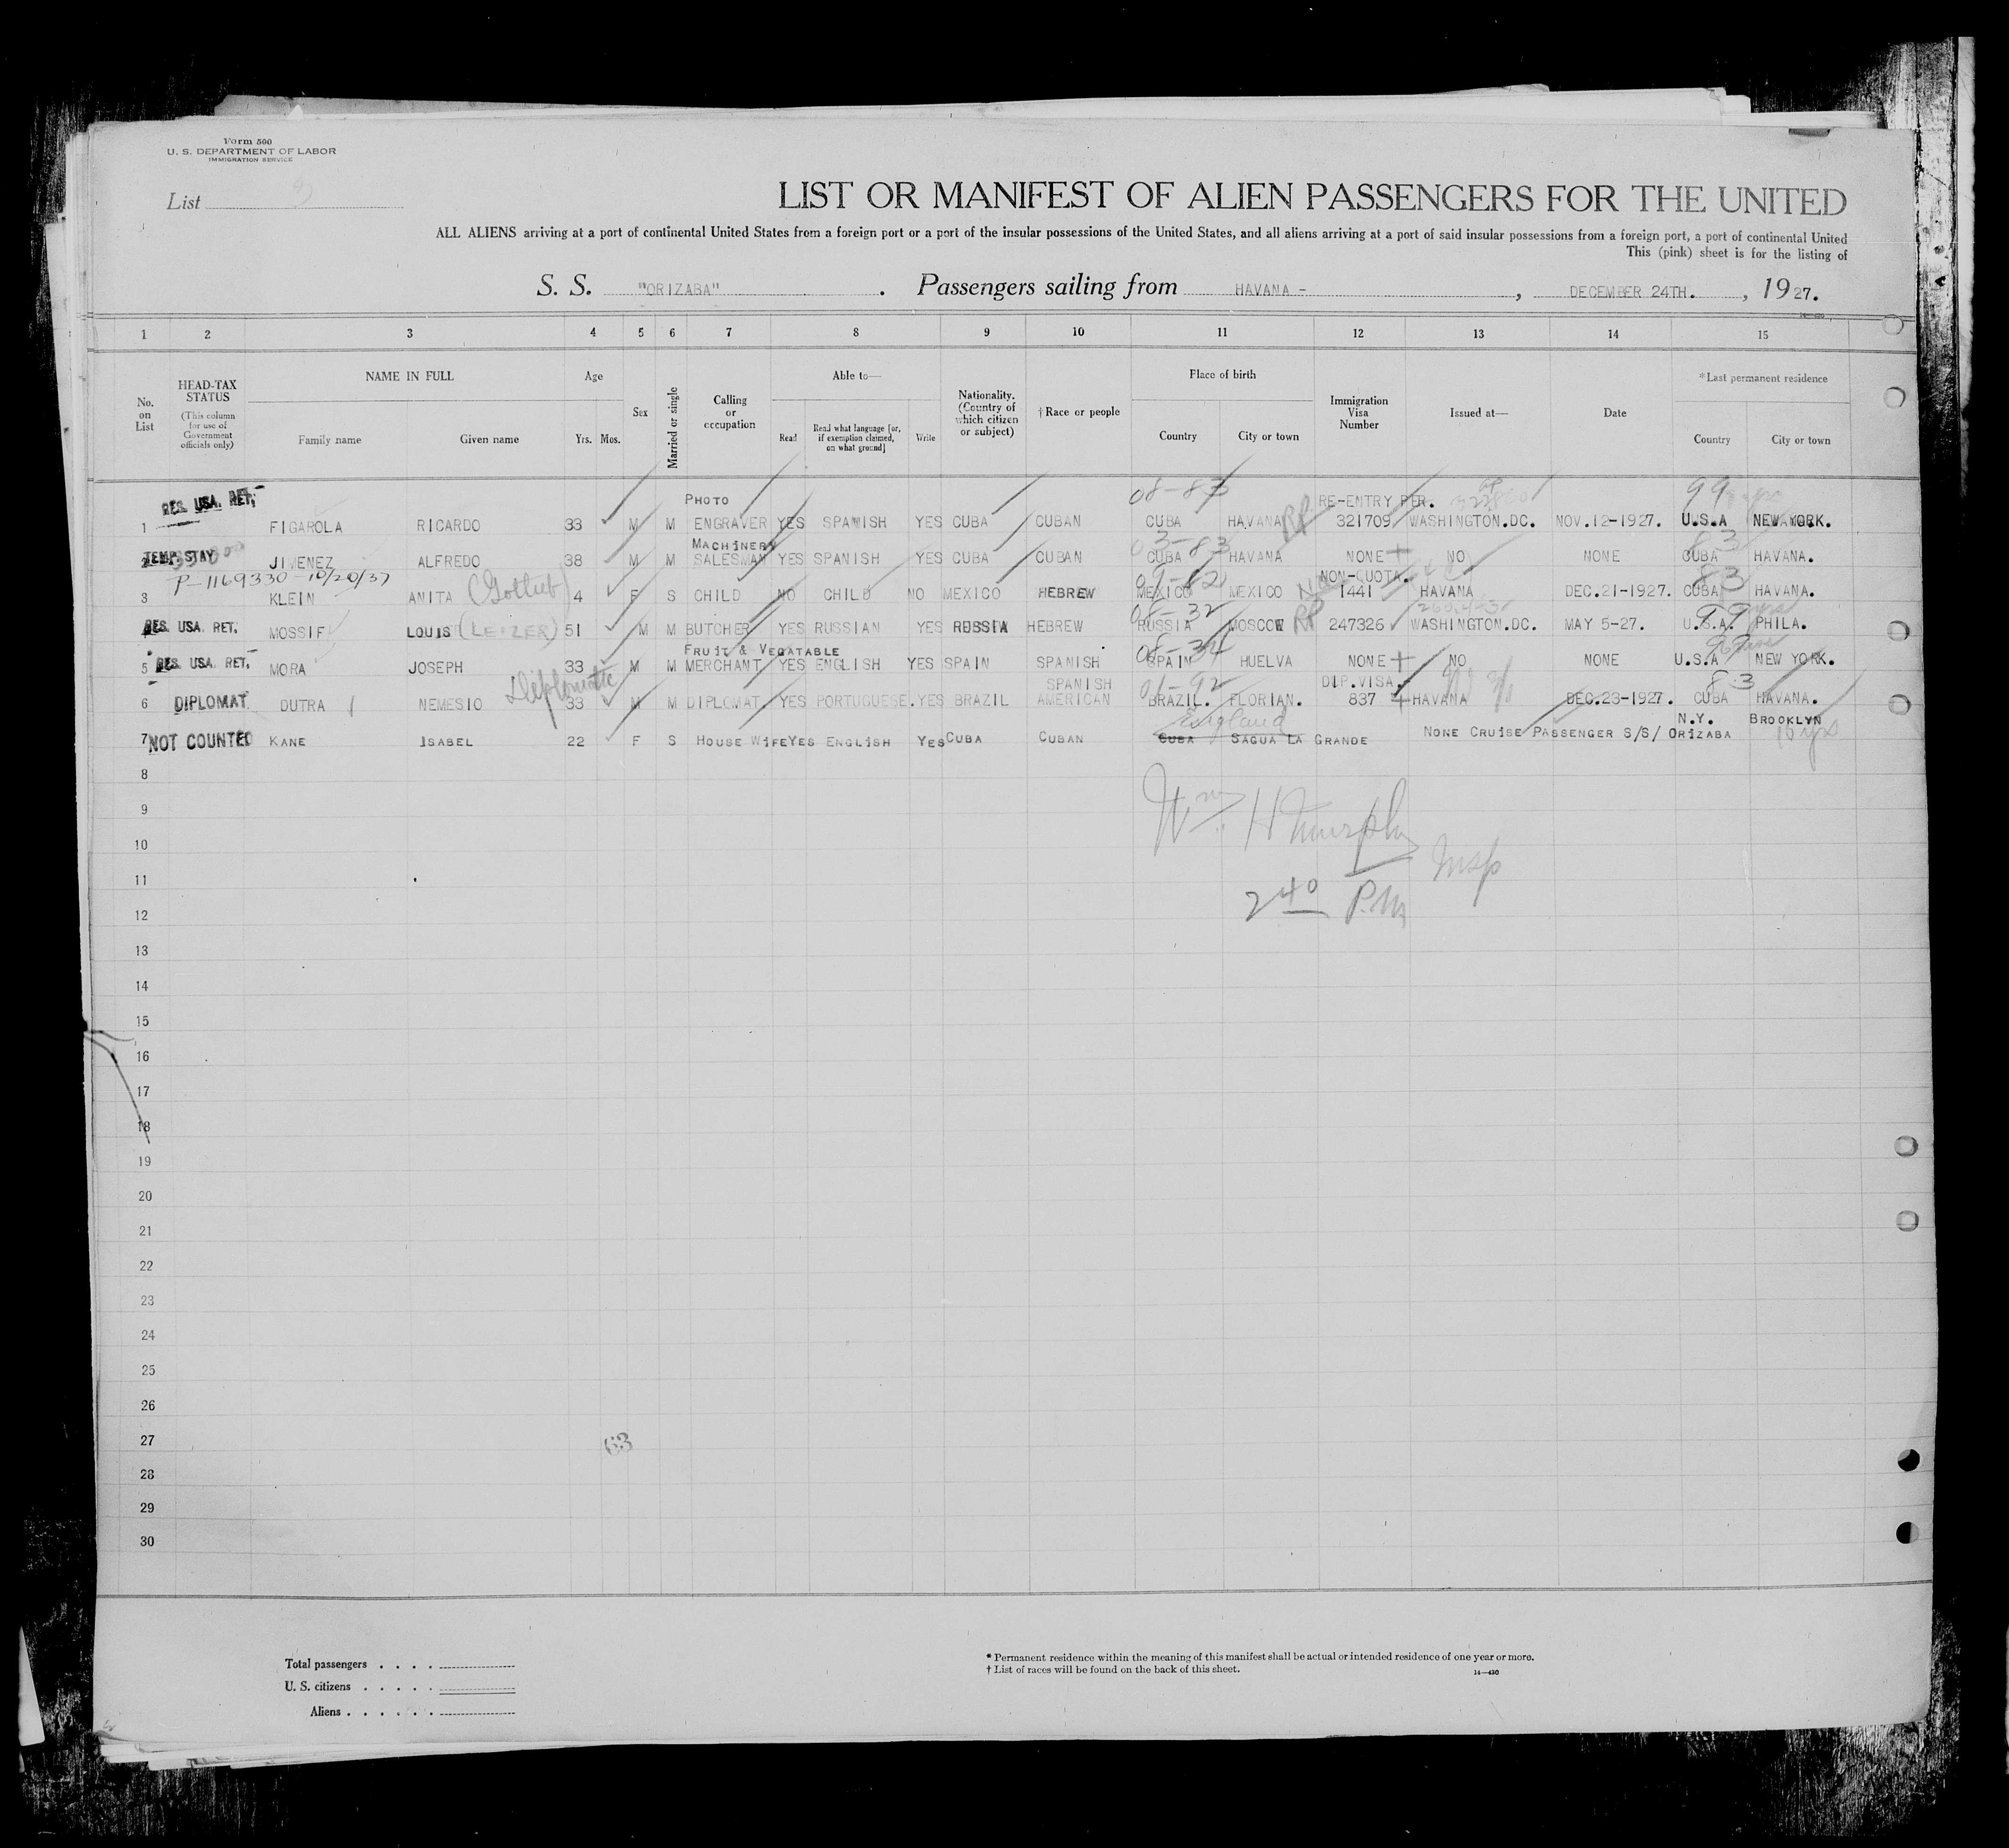 Form 500
U. S. DEPARTMENT OF LABOR
IMMIGRATION SERVICE
List
LIST OR MANIFEST OF ALIEN PASSENGERS FOR THE UNITED
ALL ALIENS arriving at a port of continental United States from a foreign port or a port of the insular possessions of the United States, and all aliens arriving at a port of said insular possessions from a foreign port, a port of continental United
This (pink) sheet is for the listing of
S. S. "ORIZABA" . Passengers sailing from HAVANA - , DECEMBER 24TH. , 1927.
1 2 3 4 5 6 7 8 9 10 11 12 13 14 15
No. on List
HEAD-TAX STATUS (This column for use of Government officials only)
NAME IN FULL
Family name Given name
Age
Yrs. Mos.
Sex
Married or single
Calling or occupation
Able to—
Read Read what language [or, if exemption claimed, on what ground] Write
Nationality. (Country of which citizen or subject)
† Race or people
Place of birth
Country City or town
Immigration Visa Number
Issued at—
Date
*Last permanent residence
Country City or town
RES. USA. RET. PHOTO 08-83 RE-ENTRY PER. 99
1 FIGAROLA RICARDO 33 M M ENGRAVER YES SPANISH YES CUBA CUBAN CUBA HAVANA RP 321709 WASHINGTON.DC. NOV.12-1927. U.S.A NEW YORK.
TEMP. STAY MACHINERY 03-83 83
2 JIMENEZ ALFREDO 38 M M SALESMAN YES SPANISH YES CUBA CUBAN CUBA HAVANA NONE NO NONE CUBA HAVANA.
P-1169330-10/20/37 09-82 NON-QUOTA. 83
3 KLEIN ANITA (Gottlieb) 4 F S CHILD NO CHILD NO MEXICO HEBREW MEXICO MEXICO 1441 HAVANA DEC.21-1927. CUBA HAVANA.
08-32 RP 99
4 RES. USA. RET. MOSSIF LOUIS (LEIZER) 51 M M BUTCHER YES RUSSIAN YES RUSSIA HEBREW RUSSIA MOSCOW 247326 WASHINGTON.DC. MAY 5-27. U.S.A. PHILA.
FRUIT & VEGATABLE 08-34
5 RES. USA. RET. MORA JOSEPH 33 M M MERCHANT YES ENGLISH YES SPAIN SPANISH SPAIN HUELVA NONE NO NONE U.S.A NEW YORK.
Diplomatic SPANISH 01-92 DIP.VISA. 83
6 DIPLOMAT DUTRA NEMESIO 33 M M DIPLOMAT. YES PORTUGUESE. YES BRAZIL AMERICAN BRAZIL. FLORIAN. 837 HAVANA DEC.23-1927. CUBA HAVANA.
England N.Y. BROOKLYN
7 NOT COUNTED KANE ISABEL 22 F S HOUSE WIFE YES ENGLISH YES CUBA CUBAN CUBA SAGUA LA GRANDE NONE CRUISE PASSENGER S/S/ ORIZABA 10 yrs
8
9 Wm. H Murphy
10 Insp
11
12 2 40 P.M
13
14
15
16
17
18
19
20
21
22
23
24
25
26
27 63
28
29
30
Total passengers . . . .
U. S. citizens . . . . .
Aliens . . . . . .
* Permanent residence within the meaning of this manifest shall be actual or intended residence of one year or more.
† List of races will be found on the back of this sheet. 14—430